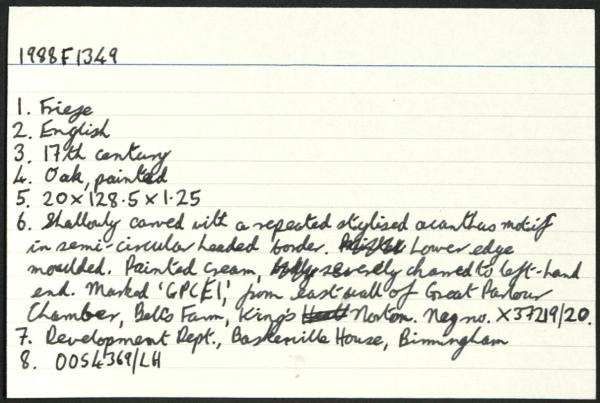 1988F1349
1. Frieze
2. English
3. 17th century
4. Oak, painted
5. 20 x 128.5 x 1.25
6. Shallowly carved with a repeated stylised acanthus motif
in semi-circular headed border. Lower edge
moulded. Painted cream, severely charred to left-hand
end. Marked 'GPCE1', from east wall of Great Parlour
Chamber, Bell's Farm, King's Norton. Neg no. X37219/20.
7. Development Dept., Baskerville House, Birmingham
8. OOS4369/LH